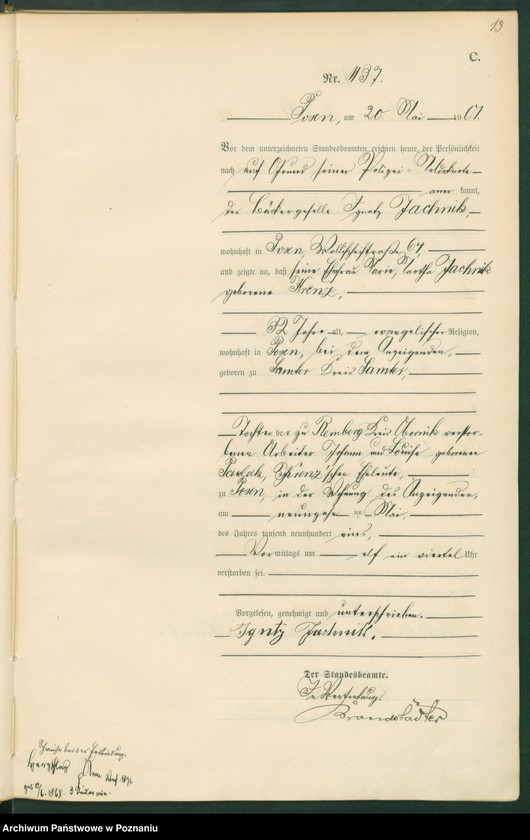 19
C.
Nr. 1137.
Posen, am 20 Mai 1901.
Vor dem unterzeichneten Standesbeamten erschien heute, der Persönlichkeit
nach auf Grund seiner Polizei-Meldekarte
aner kannt,
der Bäckergeselle Ignatz Jachnik,
wohnhaft in Posen, Wallischeistraße 67,
und zeigte an, daß seine Ehefrau Marie, Martha Jachnik
geborene Krenz,
32 Jahre alt, evangelischer Religion,
wohnhaft in Posen, bei dem Anzeigenden,
geboren zu Samter Kreis Samter,
Tochter der zu Kreis Obornik verstor-
benen Arbeiter Johann und Louise geborenen
Krenz'schen Eheleute,
zu Posen, in der Wohnung des Anzeigenden,
am neunzehnten Mai
des Jahres tausend neunhundert eins,
Vor mittags um elf ein viertel Uhr
verstorben sei.
Vorgelesen, genehmigt und unterschrieben.
Ignatz Jachnik.
Der Standesbeamte.
In Vertretung.
Brandstädter
Archiwum Państwowe w Poznaniu